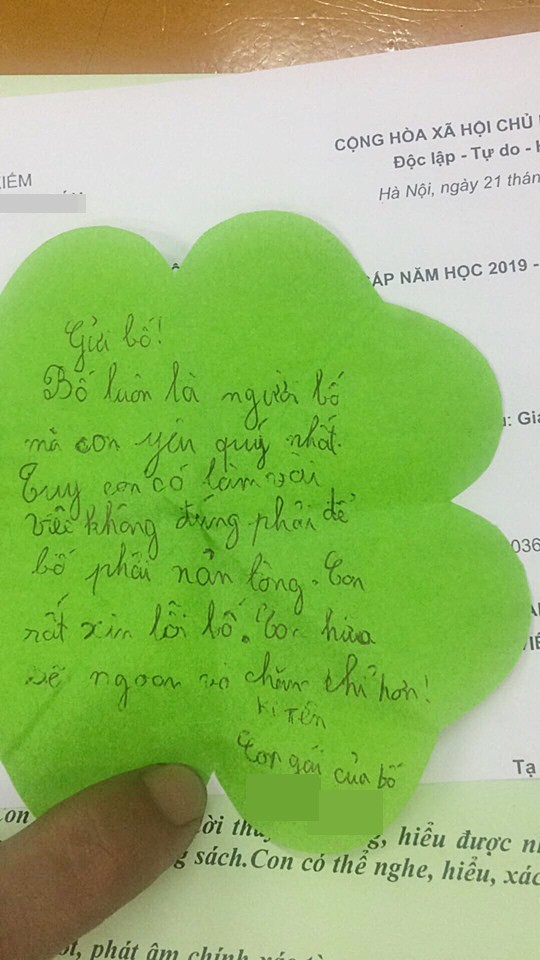 CỘNG HÒA XÃ HỘI CHỦ
Độc lập - Tự do -
Hà Nội, ngày 21 thán
IẾM
CẤP NĂM HỌC 2019 -
Gửi bố!
Bố luôn là người bố
mà con yêu quý nhất.
Tuy con có làm vài
việc không đúng phải để
bố phải nản lòng. Con
rất xin lỗi bố. Con hứa
sẽ ngoan và chăm chỉ hơn!
Kí tên
Con gái của bố
u: Gia
036
Tạ
on
ời th
g, hiểu được n
g sách.Con có thể nghe, hiểu, xác
ot, phát âm chính xác từ